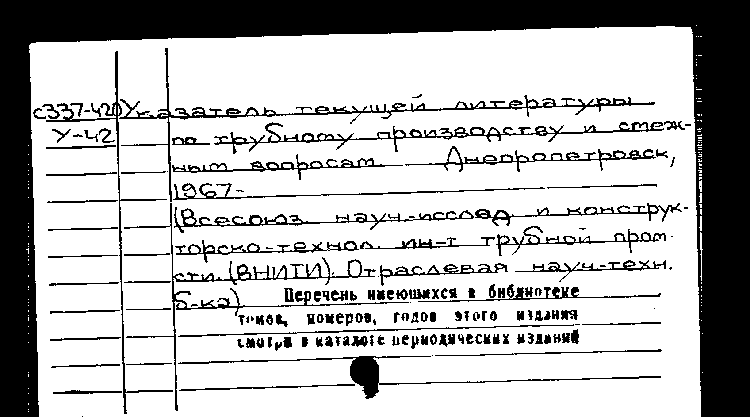 с337-420 Указатель текущей литературы
У-42 по трубному производству и смеж-
ным вопросам. Днепропетровск,
1967-
(Всесоюз. науч.-исслед. и конструк-
торско-технол. ин-т трубной пром-
сти. (ВНИТИ). Отраслевая науч.-техн.
б-ка).
Перечень имеющихся в библиотеке
томов, номеров, годов этого издания
смотри в каталоге периодических изданий